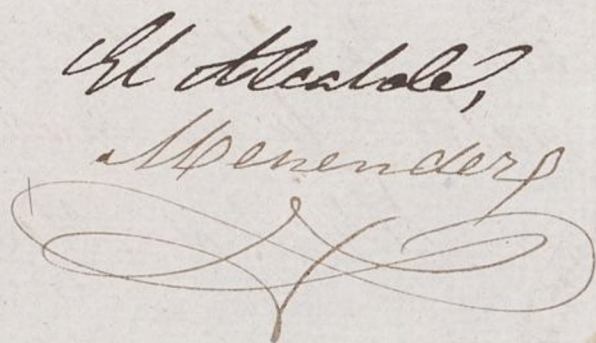 El Alcalde,
Menendez